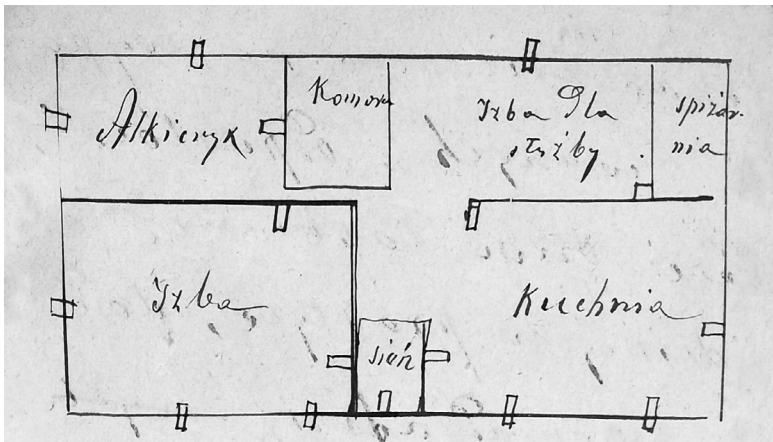 Alkierzyk
Komora
Izba Dla
służby
spiżar-
nia
Izba
sień
Kuchnia